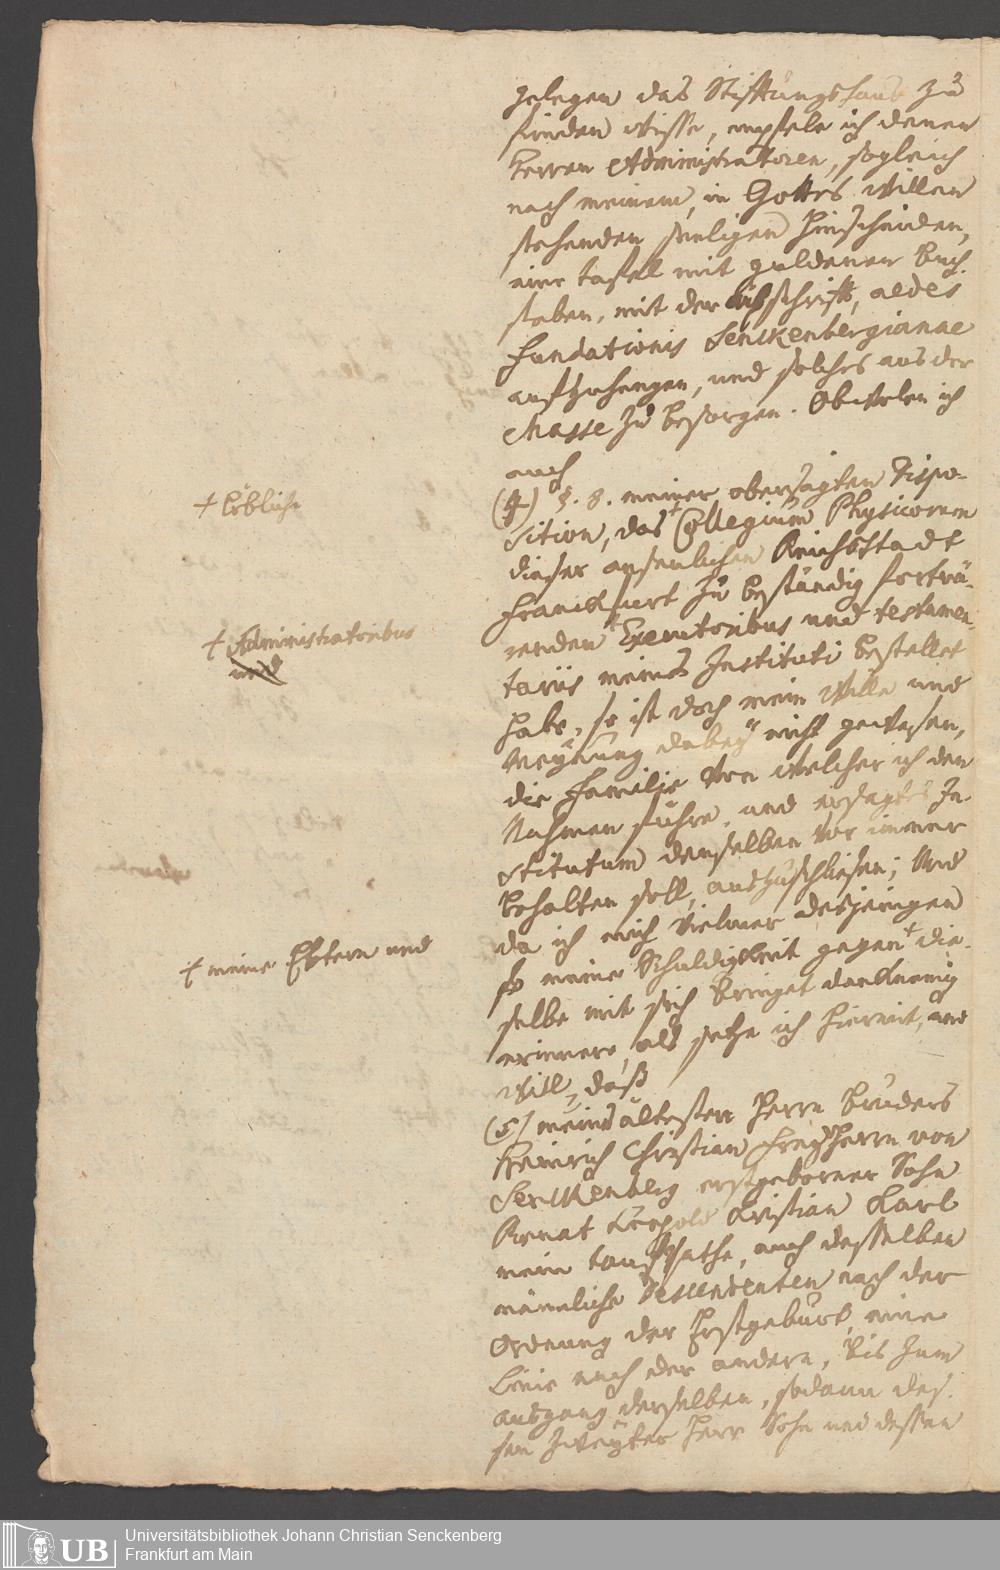 gelegen das Stifftungshaus zu
finden wisse, empfele ich denen
Herren Administratoren, sogleich
nach meinem, in Gottes Willen
stehenden seeligen Hinscheiden,
eine tafel mit guldenen Buch-
staben, mit der Uberschrifft, aedes
Fundationis Senckenbergianae
auffzuhengen, und solches aus der
Massse zu besorgen. Obwolen ich
auch
(4) §. 8. meiner obersagten Dispo-
sition, das + Collegium Physicorum
dieser ansenlichen Reichsstadt
Franckfurt zu beständig fortwä-
renden + Executoribus und testamen-
tariis meines Instituti bestellet
habe, so ist doch mein Wille und
Meynung dabey nicht gewesen,
die Familie von welcher ich den
Nahmen führe, und ersagtes In-
stitutum denselben vor immer
behalten soll, auszuschliesen; Und
da ich mich vielmer desjenigen
so meine Schuldigkeit gegen + die-
selbe mit sich bringet
erinnere, als setze ich hiermit, und
will, daß
(5) meines ältesten Herrn Bruders
Heinrich Christian Freyherrn von
Senckenberg erstgeborner Sohn
Renat Leopold Kristian Karl
mein tauffpathe, auch desselben
männliche Descendenten nach der
Ordnung der Erstgeburt, eine
Linie nach der andern, bis zum
ausgang derselben, sodann des-
sen zweyter Herr Sohn und dessen
+ löbliche
+ Administratoribus
und
+ meine Eltern und
UB
Universitätsbibliothek Johann Christian Senckenberg
Frankfurt am Main